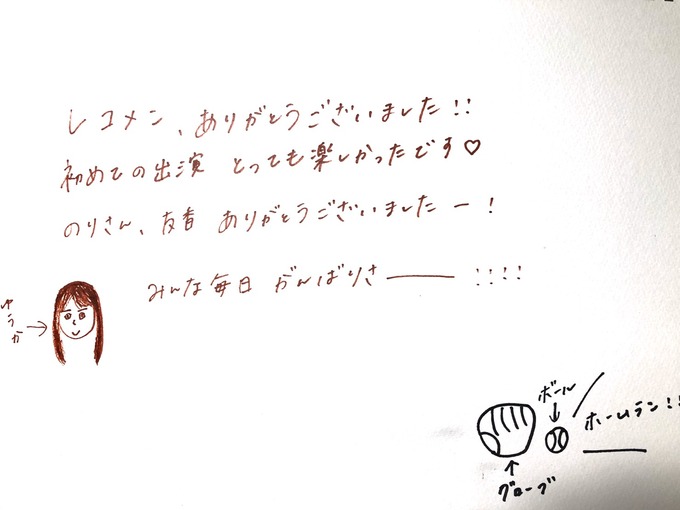 レコメン、ありがとうございました!!
初めての出演 とっても楽しかったです♡
のりさん、友香 ありがとうございましたー!
みんな毎日 がんばりさ――― !!!!
ゆうか→
ボール
↓
ホームラン!!
↑
グローブ